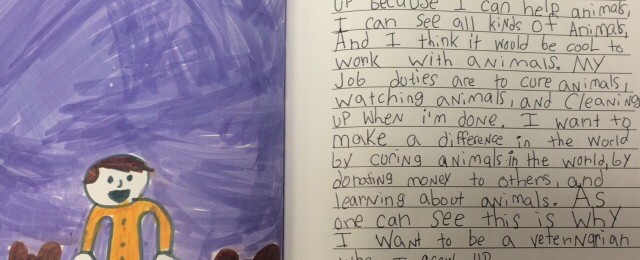 up because I can help animals,
I can see all kinds of Animals,
And I think it would be cool to
work with animals. My
Job duties are to cure animals,
watching animals, and Cleaning
up when i'm done. I want to
make a difference in the world
by curing animals in the world, by
donating money to others, and
learning about animals. As
one can see this is why
I want to be a veternarian
I grow up